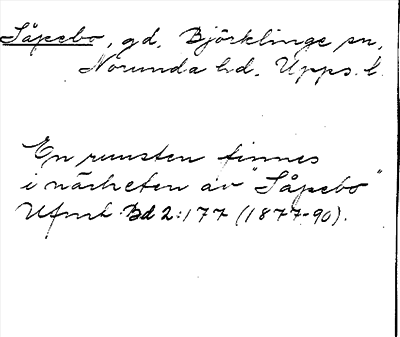 Såpebo, gd, Björklinge sn,
Norunda hd, Upps. l.
En runsten finnes
i närheten av "Såpebo"
Ufmt Bd 2:177 (1877-90).